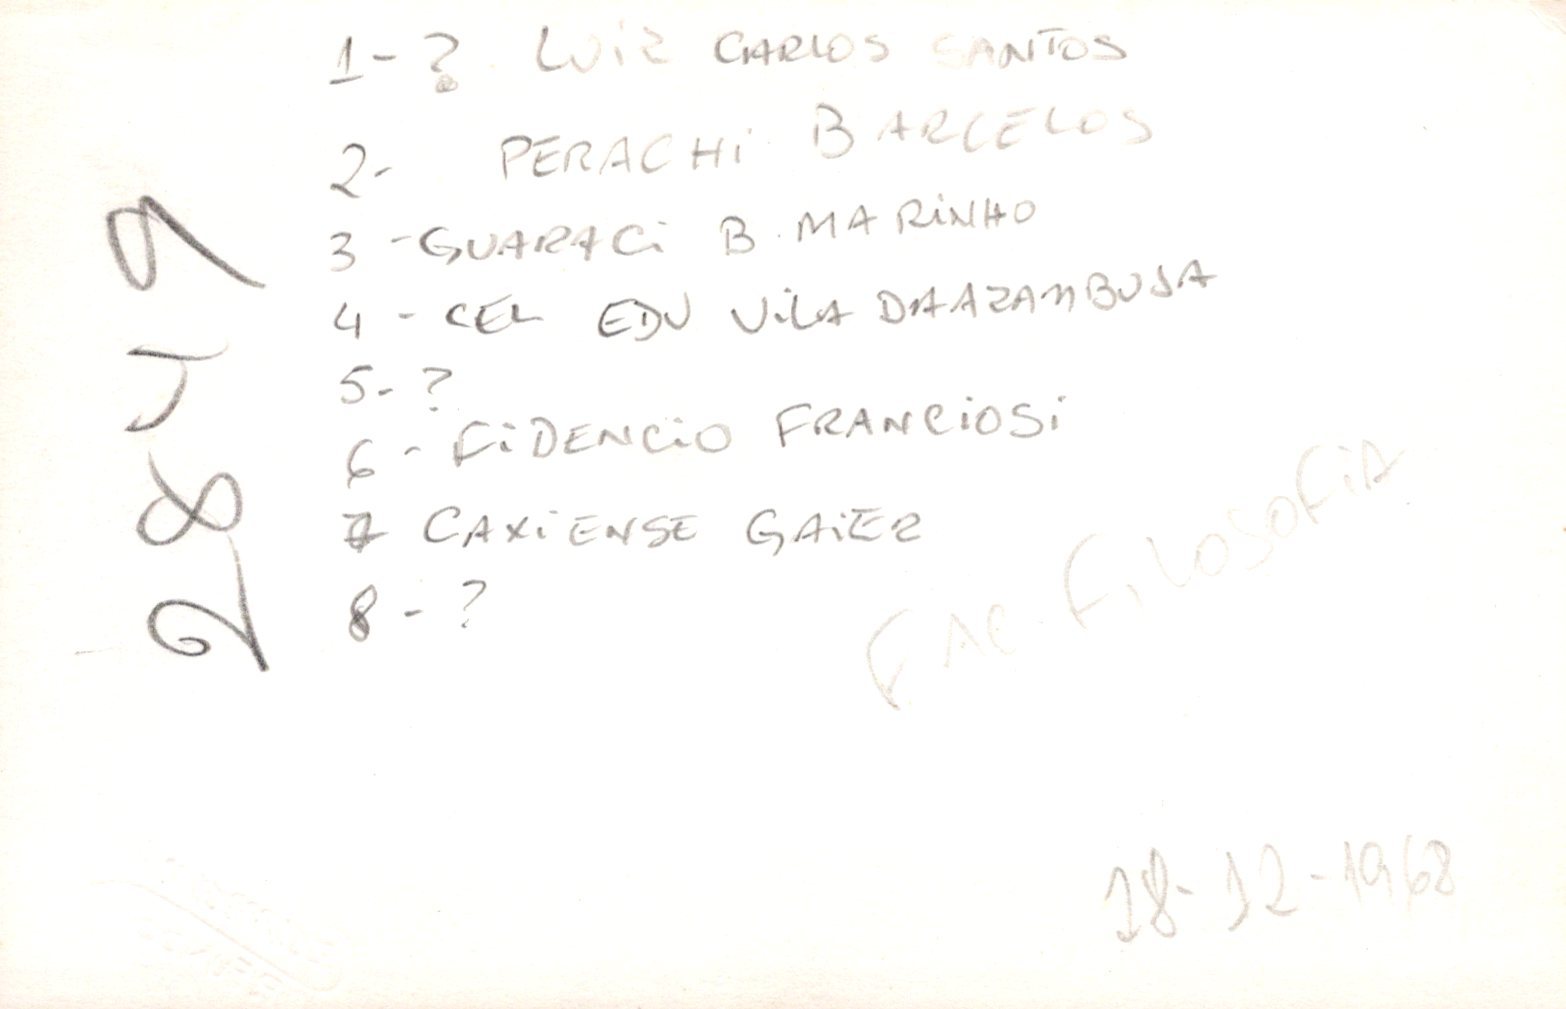 1-? LUiZ CARLOS SANTOS
2- PERACHi BARCELOS
3 - GUARACi B. MARiNHO
4 - CEL EDU ViLA DAAZAMBUJA
5- ?
6 - FiDENCiO FRANCiOSi
7 CAXiENSE GAiER
8 - ?
FAC. FiLOSOFiA
18-12-1968